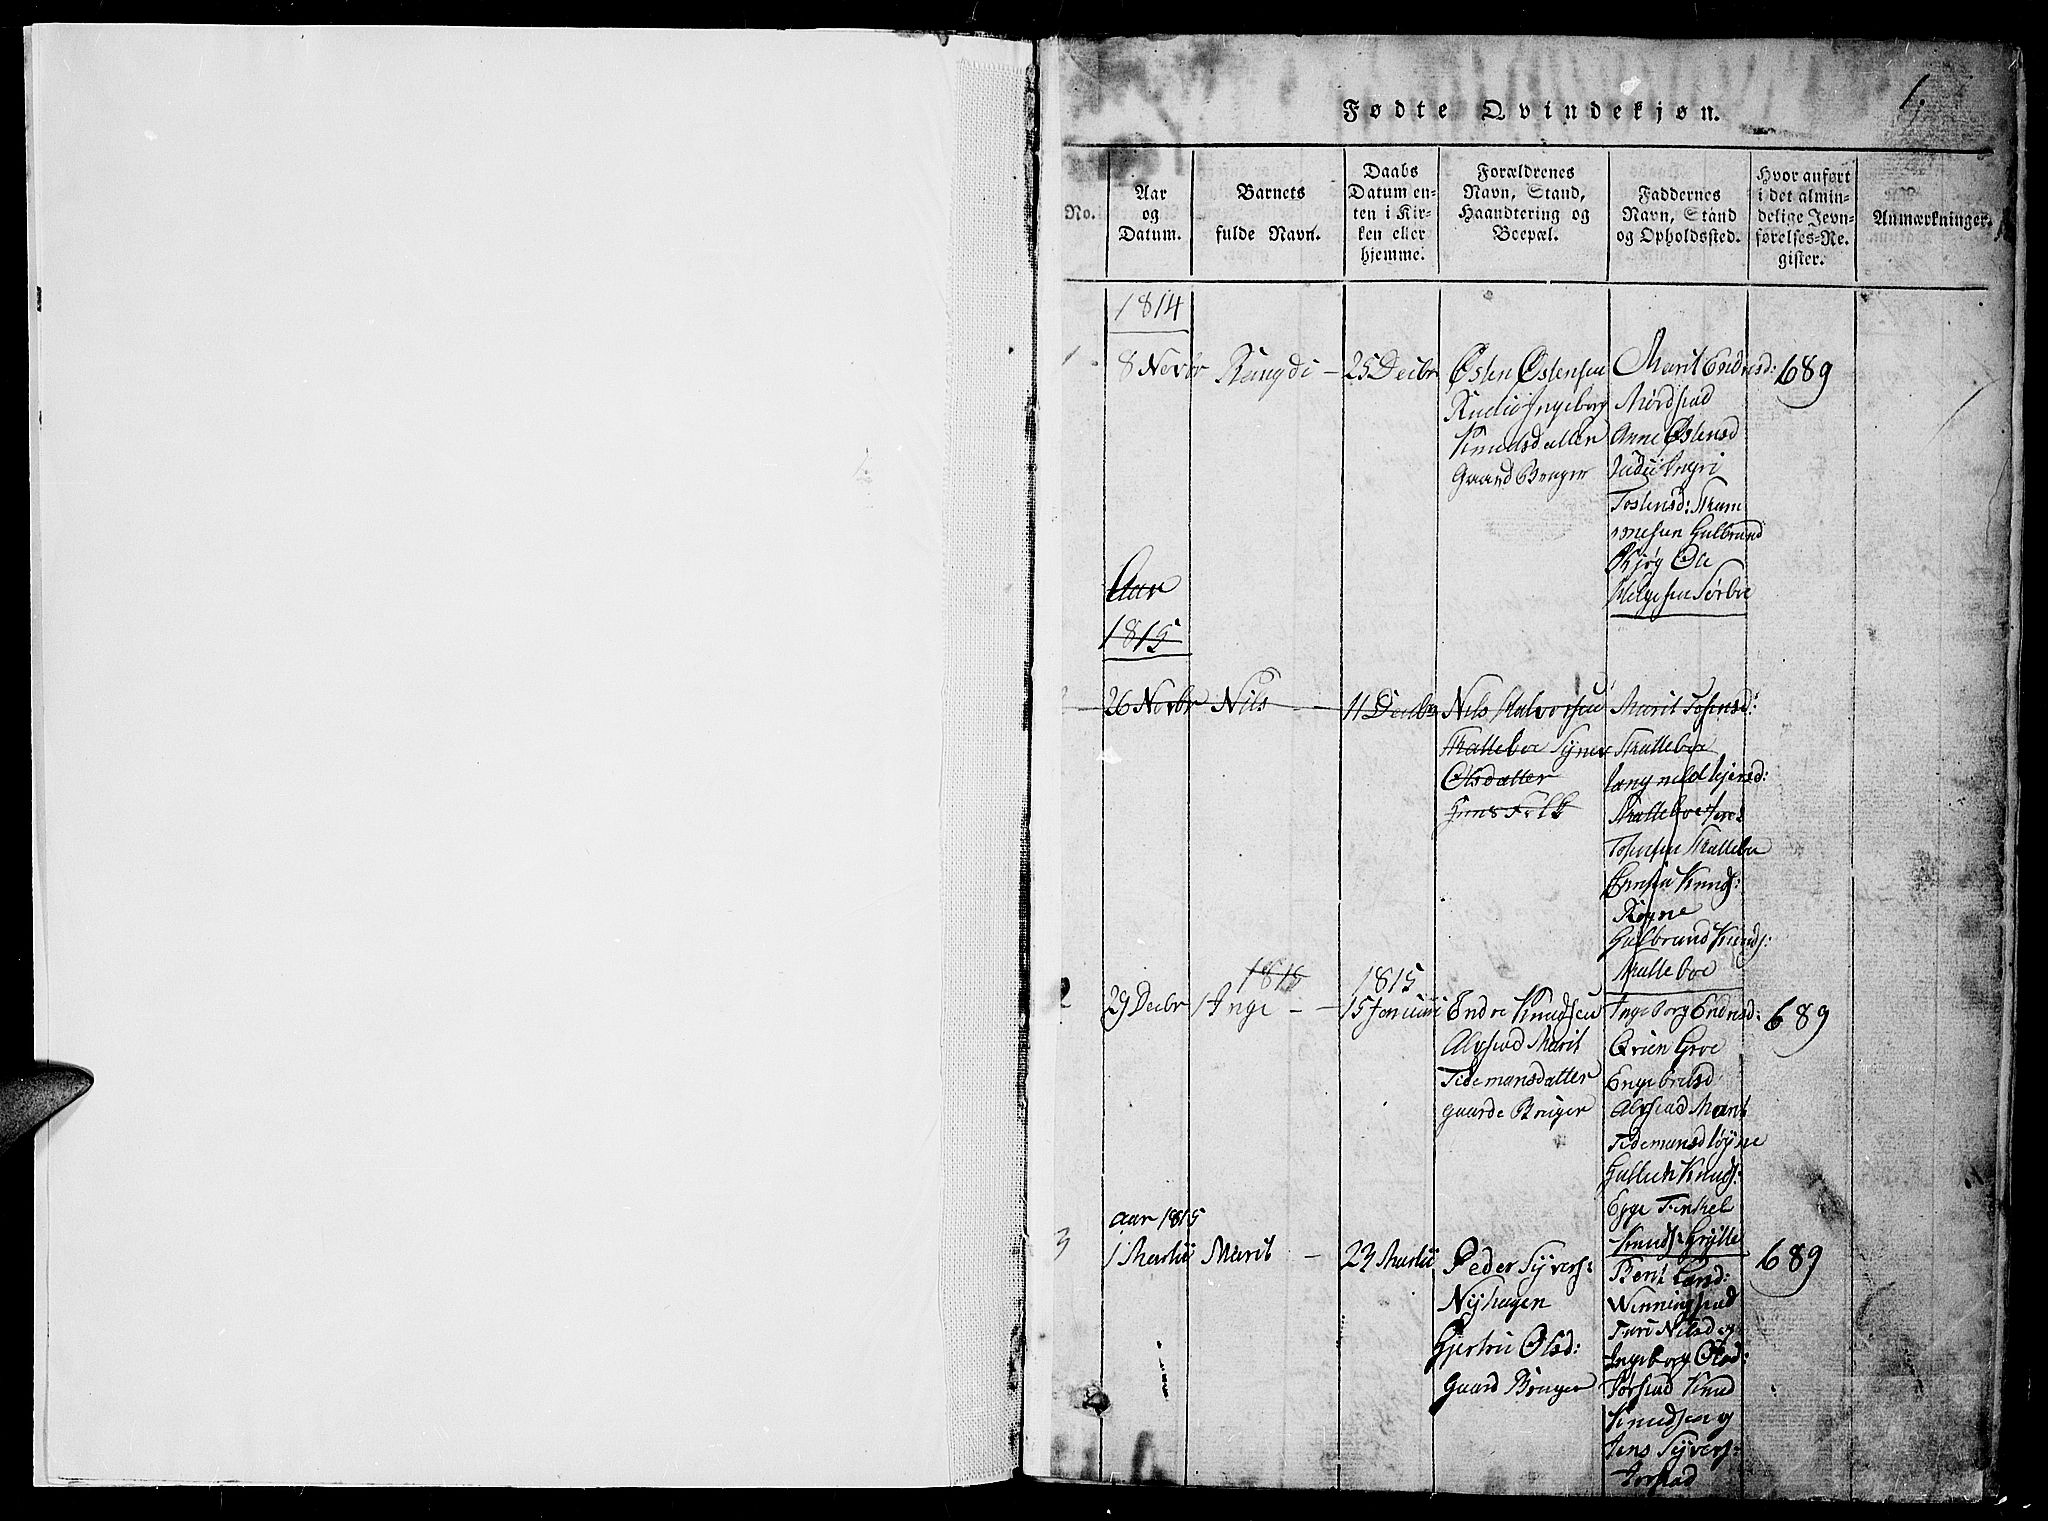 1.
Fødte Qvindekjøn.
No.
Aar
og
Datum.
Barnets
fulde Navn.
Daabs
Datum en-
ten i Kir-
ken eller
hjemme.
Forældrenes
Navn, Stand,
Haandtering og
Boepæl.
Faddernes
Navn, Stand
og Opholdssted.
Hvor anført
i det almin-
delige Jevn-
førelses-Re-
gister.
Anmærkninger.
1814
1
8 Novbr
Rangdi
25 Decbr
Østen Østensen
Ingeborg
Knudsdatter
Gaard Bruger
Marit Endresd:
Mørdstad
Anne Østensd
Ingri
Tostensd: Tram
mesen Gulbrand
Ole
Helgesen Sørboe
689
Aar
1815
2
26 Novbr
Nils
11 Decbr
Nils Halvorsen
Tralleboe Synev
Olsdatter
Huus Folk
Marit Tostensd:
Tralleboe
Tralleboe
Tralleboe
Knuds:
Røyne
Gulbrand Knuds:
Tralleboe
1815
1815
2
29 Decbr
Inge
15 Januuii
Endre Knudsen
Alvstad Marit
Tidemansdatter
gaarde Bruger
Ingeborg Endresd:
Groe
Engebretsd
Alvstad Marit
Tidemansd Røyne
Knuds:
Egge Tinkel
Knuds: Grytte
689
aar 1815
3
1 Martii
Marit
23 Martii
Peder Syvers:
Nyhagen
Gjertrue Olsd:
Gaard Bruger
Berit
Winningstad
Turi Nilsd og
Ingeborg Olsd:
Jorstad Knud
Knudsen og
Jens Syvers:
Jorstad
689